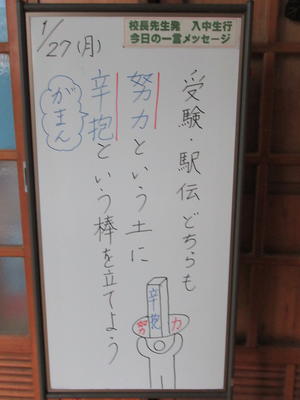 校長先生発　入中生行
今日の一言メッセージ
1/27(月)
受験・駅伝どちらも
努力という土に
辛抱という棒を立てよう
がまん
辛抱
努力